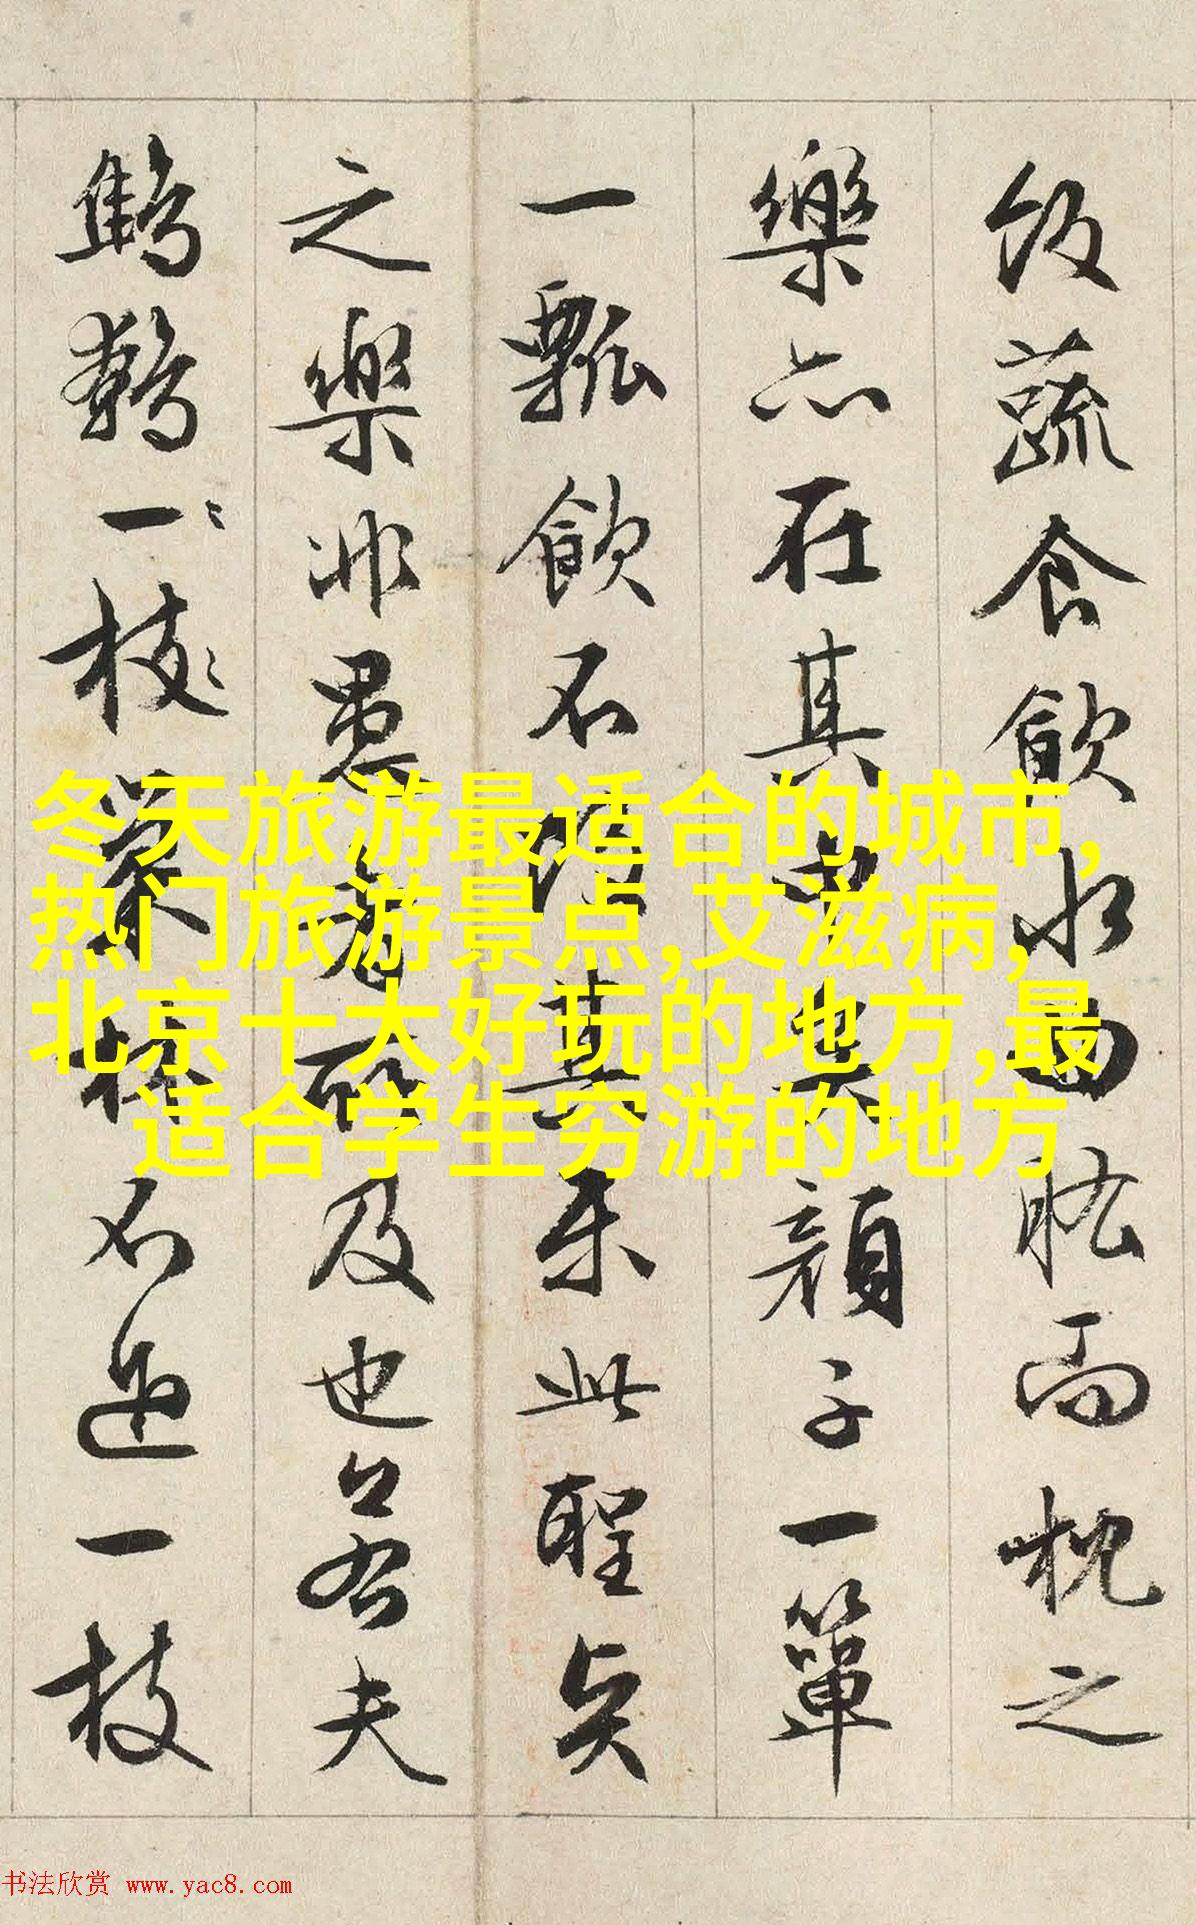 飯蔬食飲水曲肱而枕之
樂亦在其中矣顏子一簞
一瓢飲不改其樂此聖賢
之樂非愚者所及也若夫
鷦鷯一〻枝〻巢林不過一枝
冬天旅游最适合的城市,
热门旅游景点,艾滋病,
北京十大好玩的地方,最
适合学生穷游的地方
书法欣赏 www.yac8.com